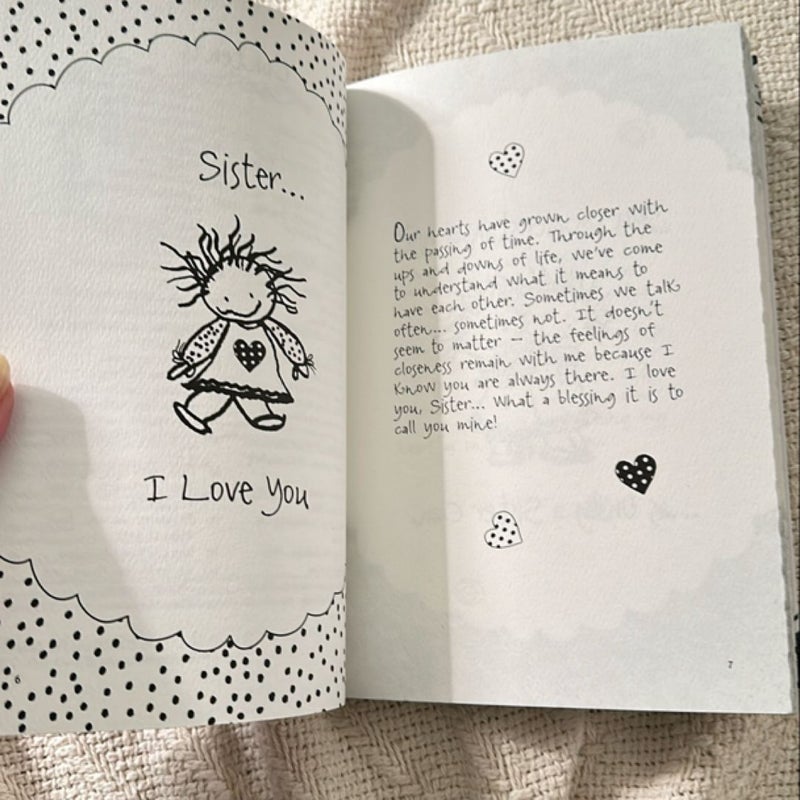 Sister...
I Love You
6
Our hearts have grown closer with
the passing of time. Through the
ups and downs of life, we've come
to understand what it means to
have each other. Sometimes we talk
often... sometimes not. It doesn't
seem to matter – the feelings of
closeness remain with me because I
know you are always there. I love
you, Sister... What a blessing it is to
call you mine!
7